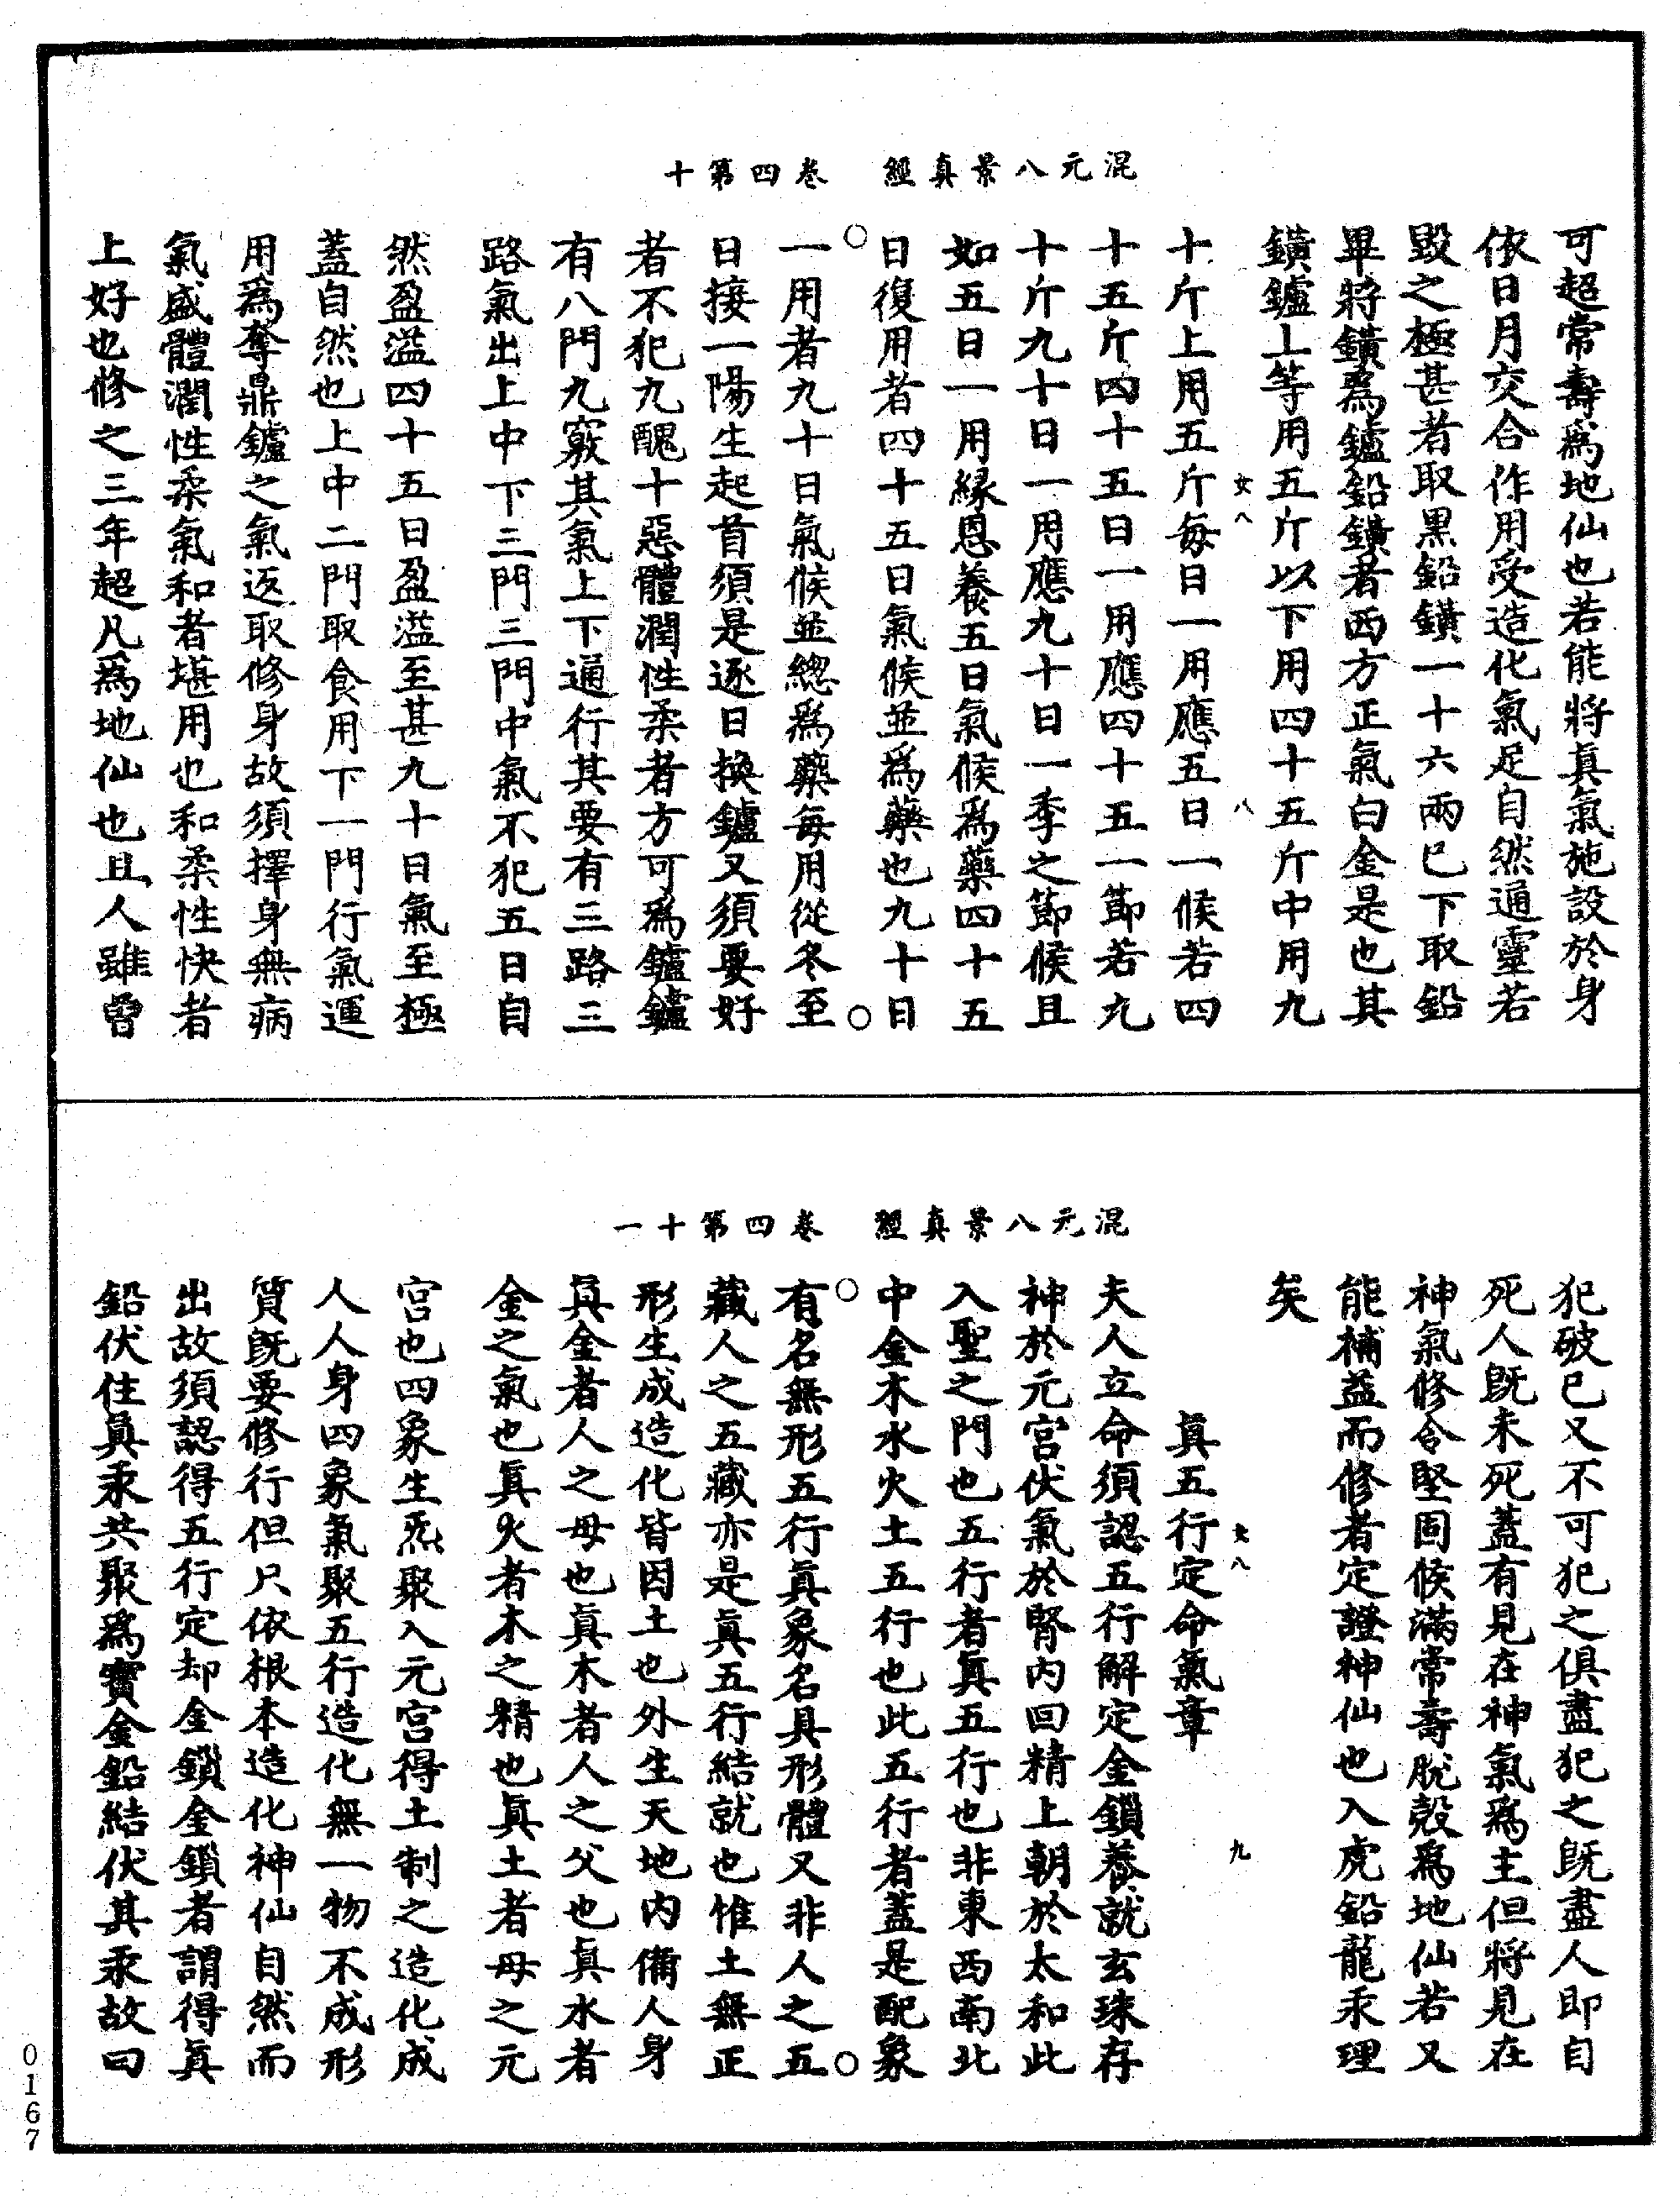 混元八景真經　卷四第十
可超常壽爲地仙也若能將真氣施設於身
依日月交合作用受造化氣足自然通靈若
毀之極甚者取黑鉛鐄一十六兩巳下取鉛
畢將鐄爲鑪鉛鐄者西方正氣白金是也其
鐄鑪上等用五斤以下用四十五斤中用九
女八　八
十斤上用五斤每日一用應五日一候若四
十五斤四十五日一用應四十五一節若九
十斤九十日一用應九十日一季之節候且
如五日一用緣恩養五日氣候爲藥四十五
日復用者四十五日氣候並爲藥也九十日
一用者九十日氣候並總爲藥每用從冬至
日接一陽生起首須是逐日換鑪又須要好
者不犯九醜十惡體潤性柔者方可爲鑪鑪
有八門九竅其氣上下通行其要有三路三
路氣出上中下三門三門中氣不犯五日自
然盈溢四十五日盈溢至甚九十日氣至極
蓋自然也上中二門取食用下一門行氣運
用爲奪鼎鑪之氣返取修身故須擇身無病
氣盛體潤性柔氣和者堪用也和柔性快者
上好也修之三年超凡爲地仙也且人雖曾
混元八景真經　卷四第十一
犯破巳又不可犯之俱盡犯之既盡人即自
死人既未死蓋有見在神氣爲主但將見在
神氣修令堅固候滿常壽脫殼爲地仙若又
能補益而修者定證神仙也入虎鉛龍汞理
矣
女八　九
真五行定命氣章
夫人立命須認五行解定金鎖養就玄珠存
神於元宮伏氣於腎內回精上朝於太和此
入聖之門也五行者真五行也非東西南北
中金木水火土五行也此五行者蓋是配象
有名無形五行真象名具形體又非人之五
藏人之五藏亦是真五行結就也惟土無正
形生成造化皆因土也外生天地內備人身
真金者人之母也真木者人之父也真水者
金之氣也真火者木之精也真土者母之元
宮也四象生炁聚入元宮得土制之造化成
人人身四象氣聚五行造化無一物不成形
質既要修行但只依根本造化神仙自然而
出故須認得五行定却金鎖金鎖者謂得真
鉛伏住真汞共聚爲寶金鉛結伏其汞故曰
0167